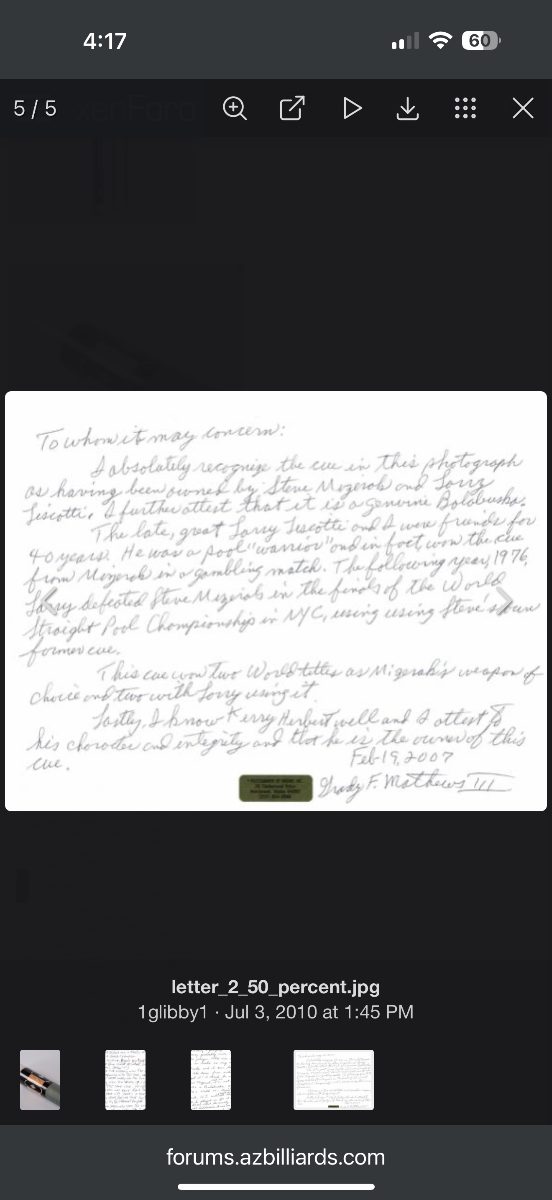 4:17
60
5 / 5
To whom it may concern:
I absolutely recognize the cue in this photograph
as having been owned by Steve Mizerak and Larry
Liscotti. I further attest that it is a genuine Balabushka.
The late, great Larry Liscotti and I were friends for
40 years. He was a pool "warrior" and in fact won the cue
from Mizerak in a gambling match. The following year, 1976,
Larry defeated Steve Mizerak in the finals of the World
Straight Pool Championship in NYC, using using Steve's own
former cue.
This cue won two World titles as Mizerak's weapon of
choice and two with Larry using it
Lastly, I know Kerry Herbert well and I attest to
his character and integrity and that he is the owner of this
cue.
Feb 19, 2007
Grady F. Mathews III
letter_2_50_percent.jpg
1glibby1 · Jul 3, 2010 at 1:45 PM
forums.azbilliards.com